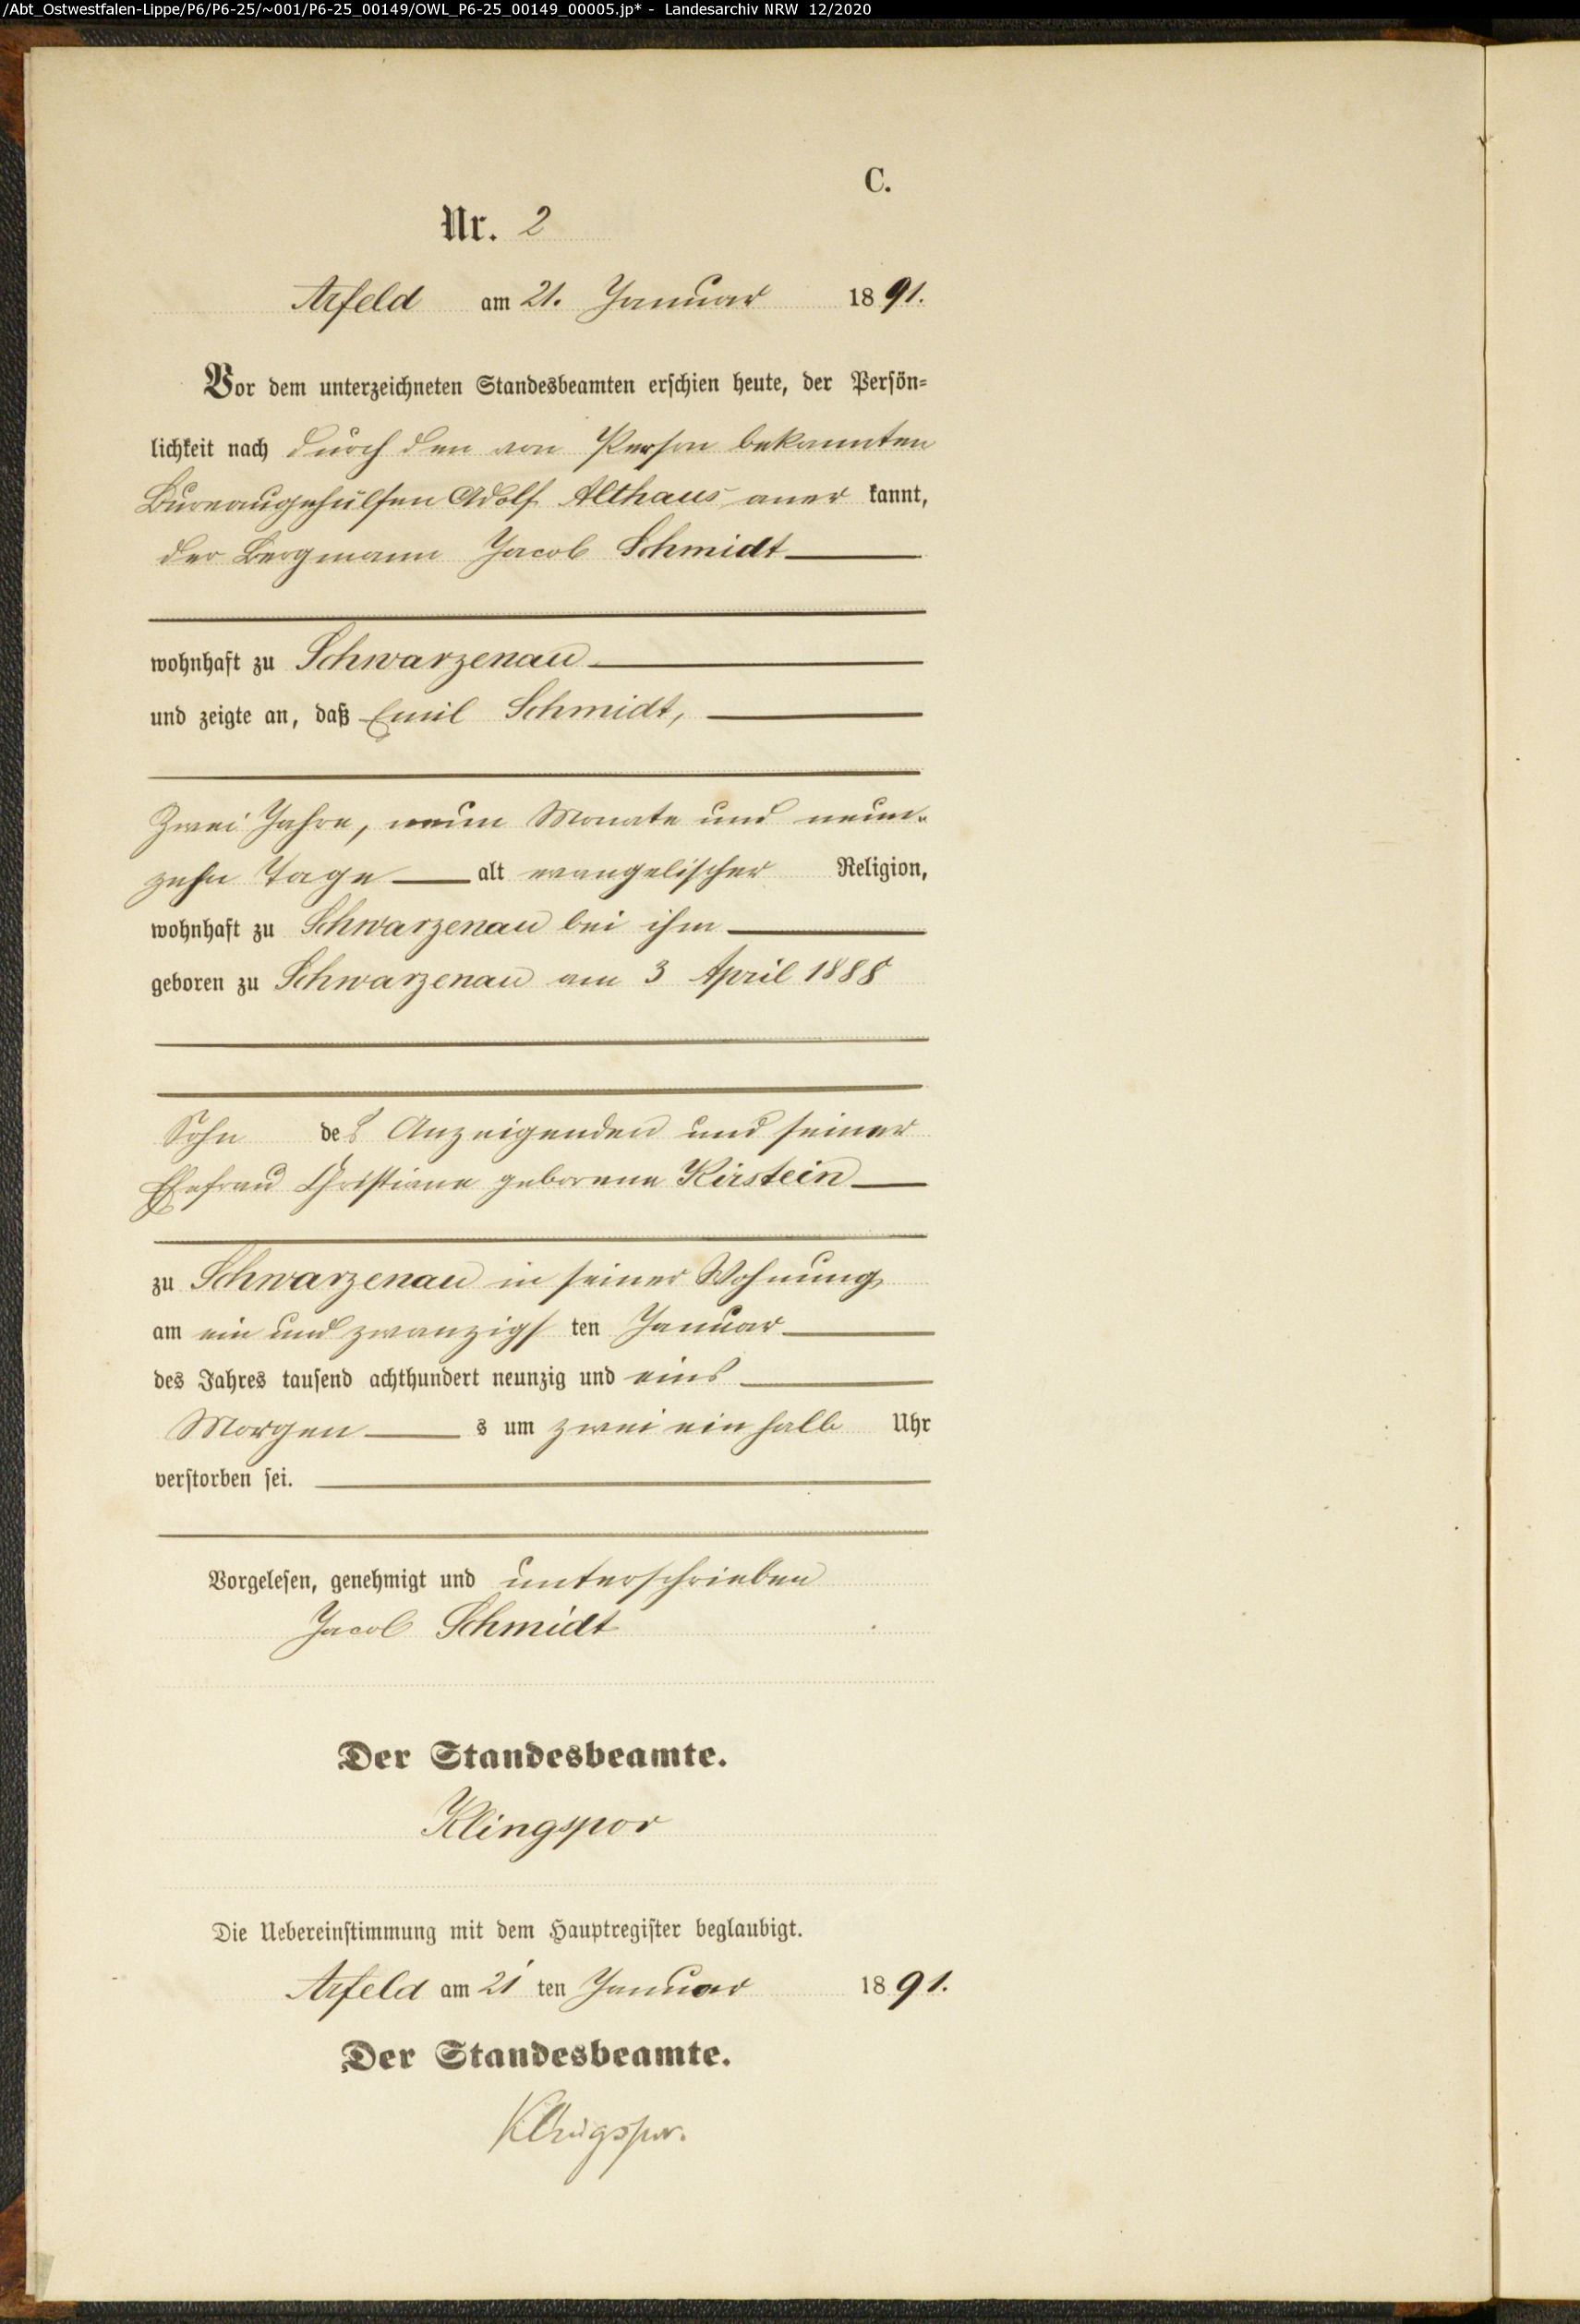 /Abt_Ostwestfalen-Lippe/P6/P6-25/~001/P6-25_00149/OWL_P6-25_00149_00005.jp* - Landesarchiv NRW 12/2020
C.
Nr. 2
Arfeld am 21. Januar 1891.
Vor dem unterzeichneten Standesbeamten erschien heute, der Persön-
lichkeit nach durch den von Person bekannten
Bureaugehülfen Adolf Althaus aner kannt,
der Bergmann Jacob Schmidt
wohnhaft zu Schwarzenau
und zeigte an, daß Emil Schmidt,
Zwei Jahre, neun Monate und neun-
zehn Tage alt evangelischer Religion,
wohnhaft zu Schwarzenau bei ihm
geboren zu Schwarzenau am 3 April 1888
Sohn des Anzeigenden und seiner
Ehefrau Christiane geborene Kirstein
zu Schwarzenau in seiner Wohnung
am ein und zwanzigs ten Januar
des Jahres tausend achthundert neunzig und eins
Morgen s um zwei ein halb Uhr
verstorben sei.
Vorgelesen, genehmigt und unterschrieben
Jacob Schmidt
Der Standesbeamte.
Klingspor
Die Uebereinstimmung mit dem Hauptregister beglaubigt.
Arfeld am 21 ten Januar 1891.
Der Standesbeamte.
Klingspor.